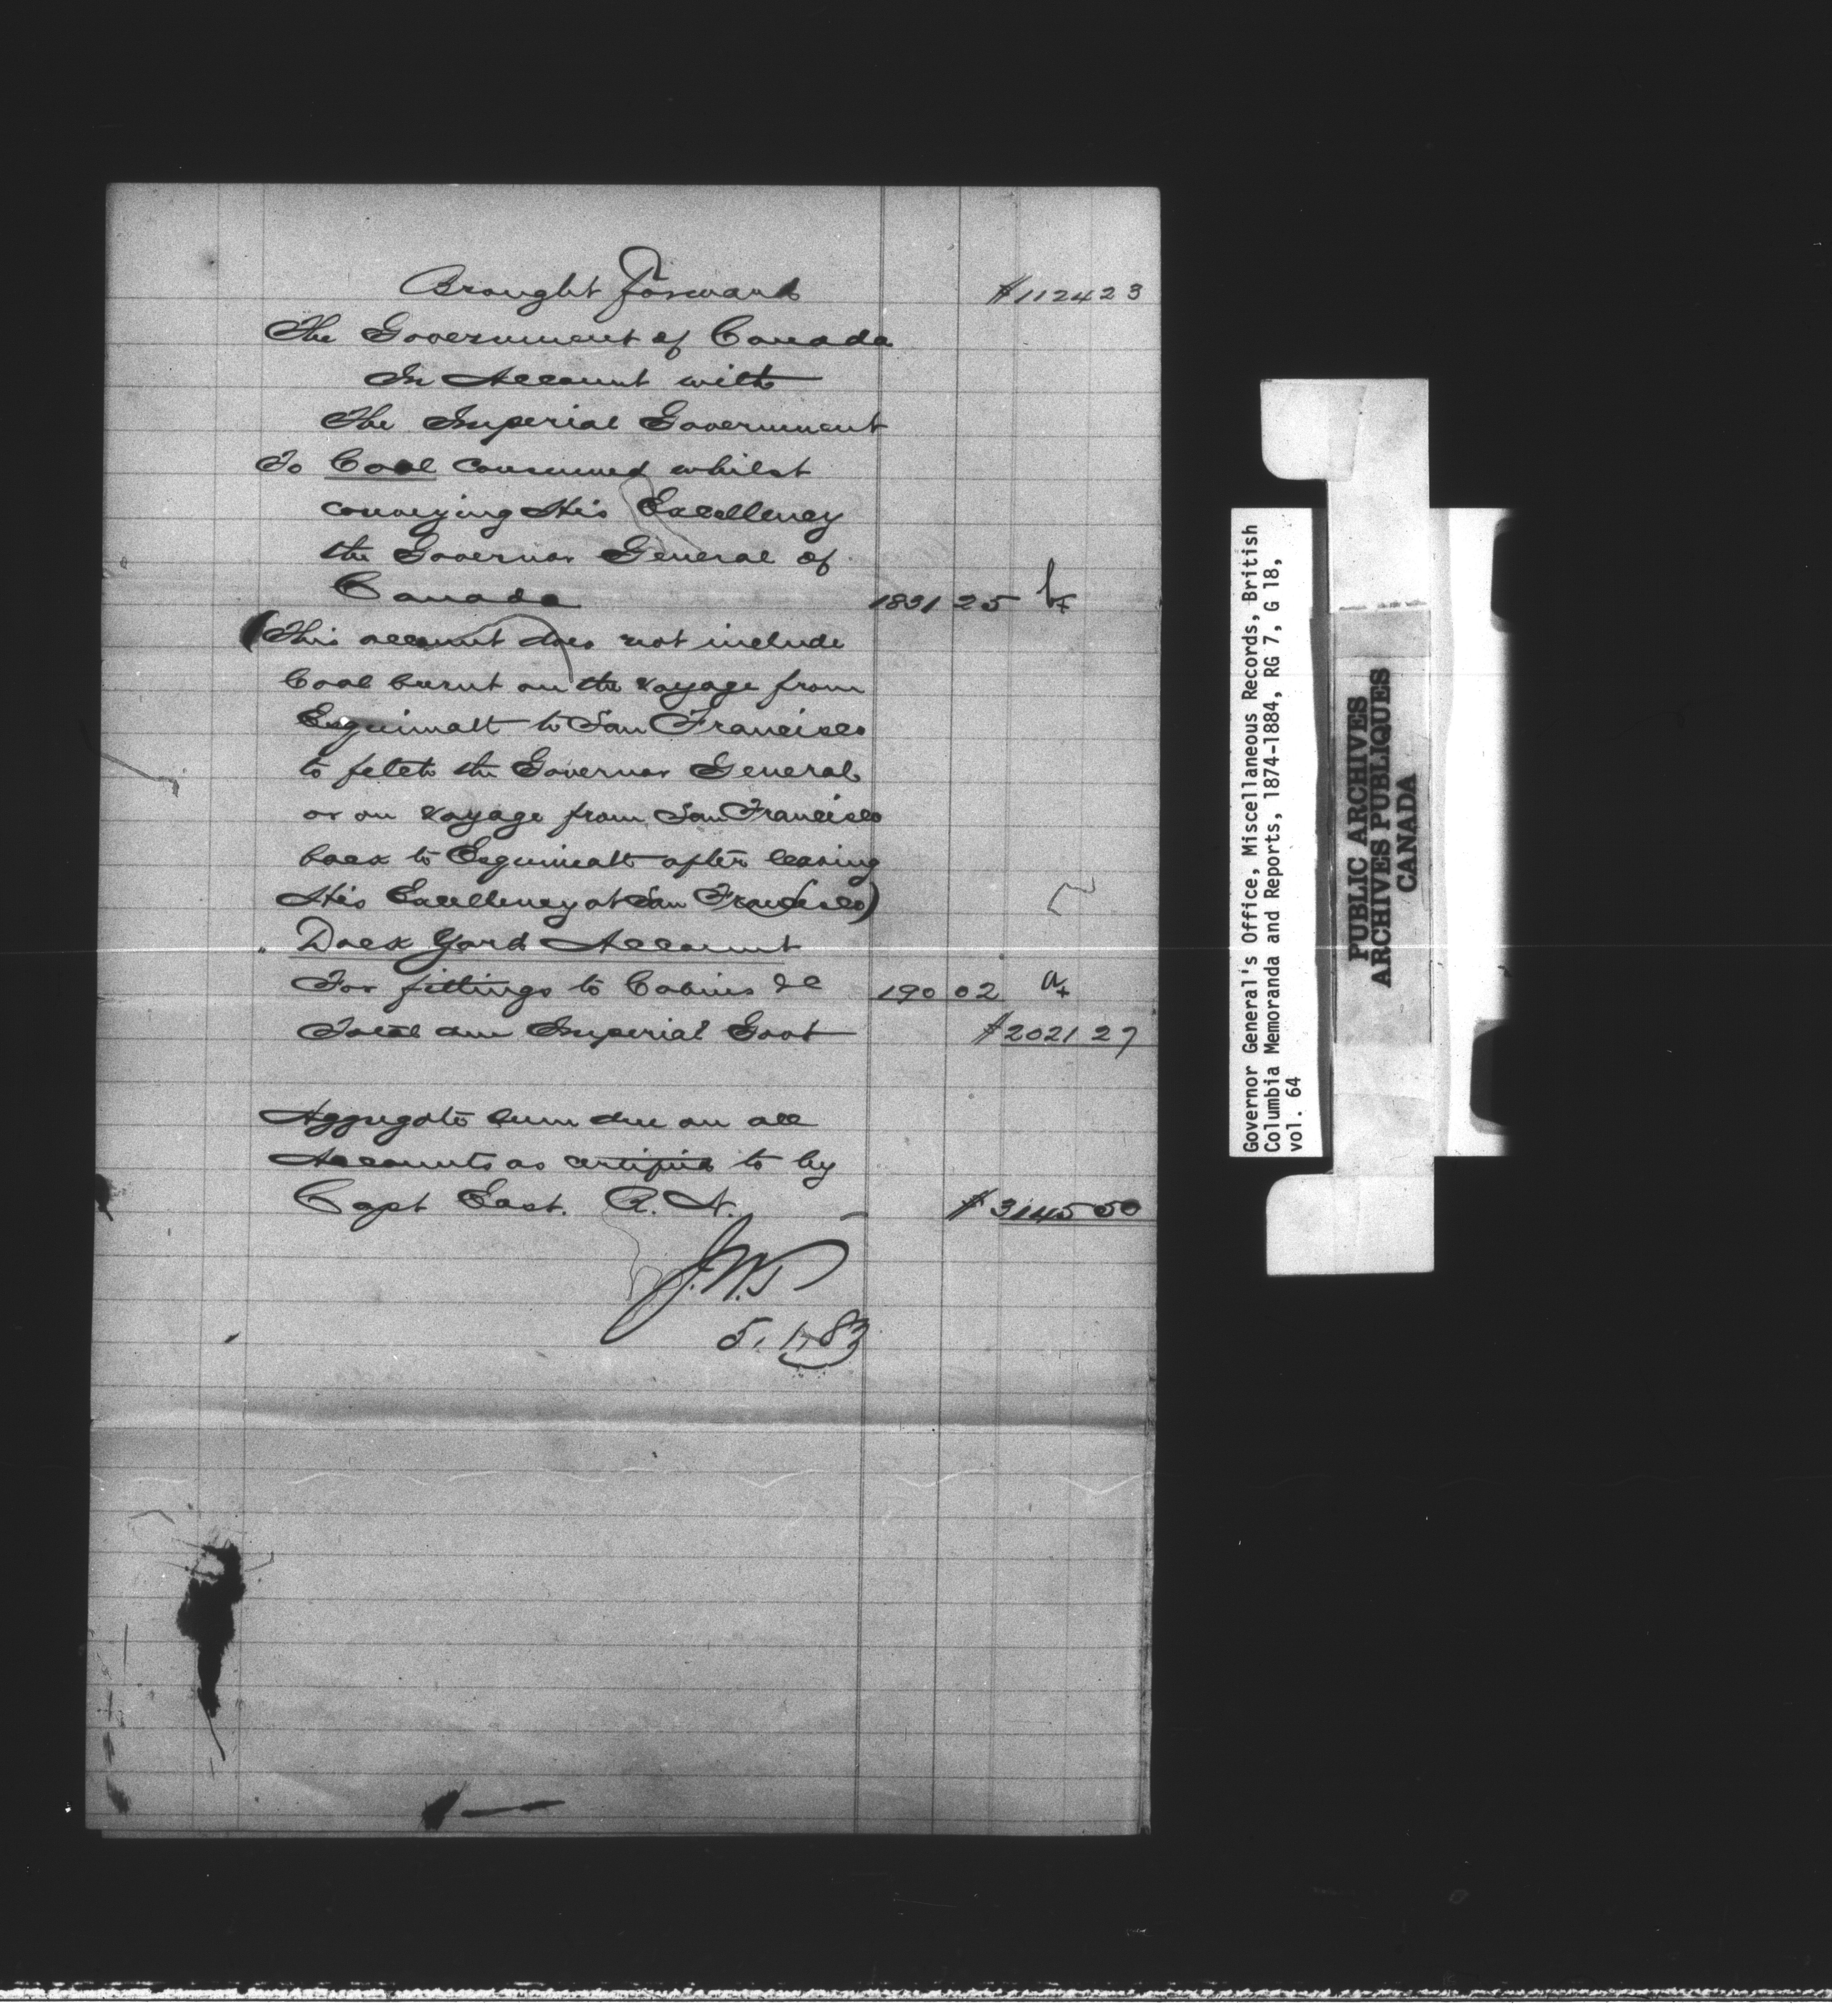 Brought Forward $1124 23
The Government of Canada
In Account with
The Imperial Government
To Coal consumed whilst
conveying His Excellency
the Governor General of
Canada 1831 25 b+
(This account does not include
Coal burnt on the voyage from
Esquimalt to San Francisco
to fetch the Governor General
or on voyage from San Francisco
back to Esquimalt after leaving
His Excellency at San Francisco)
" Dock Yard Account
For fittings to Cabins &c 190 02 a+
Total due Imperial Govt $2021 27
Aggregate sum due on all
Accounts as certified to by
Capt East. R. N. $3145 50
5.1.83
Governor General's Office, Miscellaneous Records, British
Columbia Memoranda and Reports, 1874-1884, RG 7, G 18,
vol. 64
PUBLIC ARCHIVES
ARCHIVES PUBLIQUES
CANADA